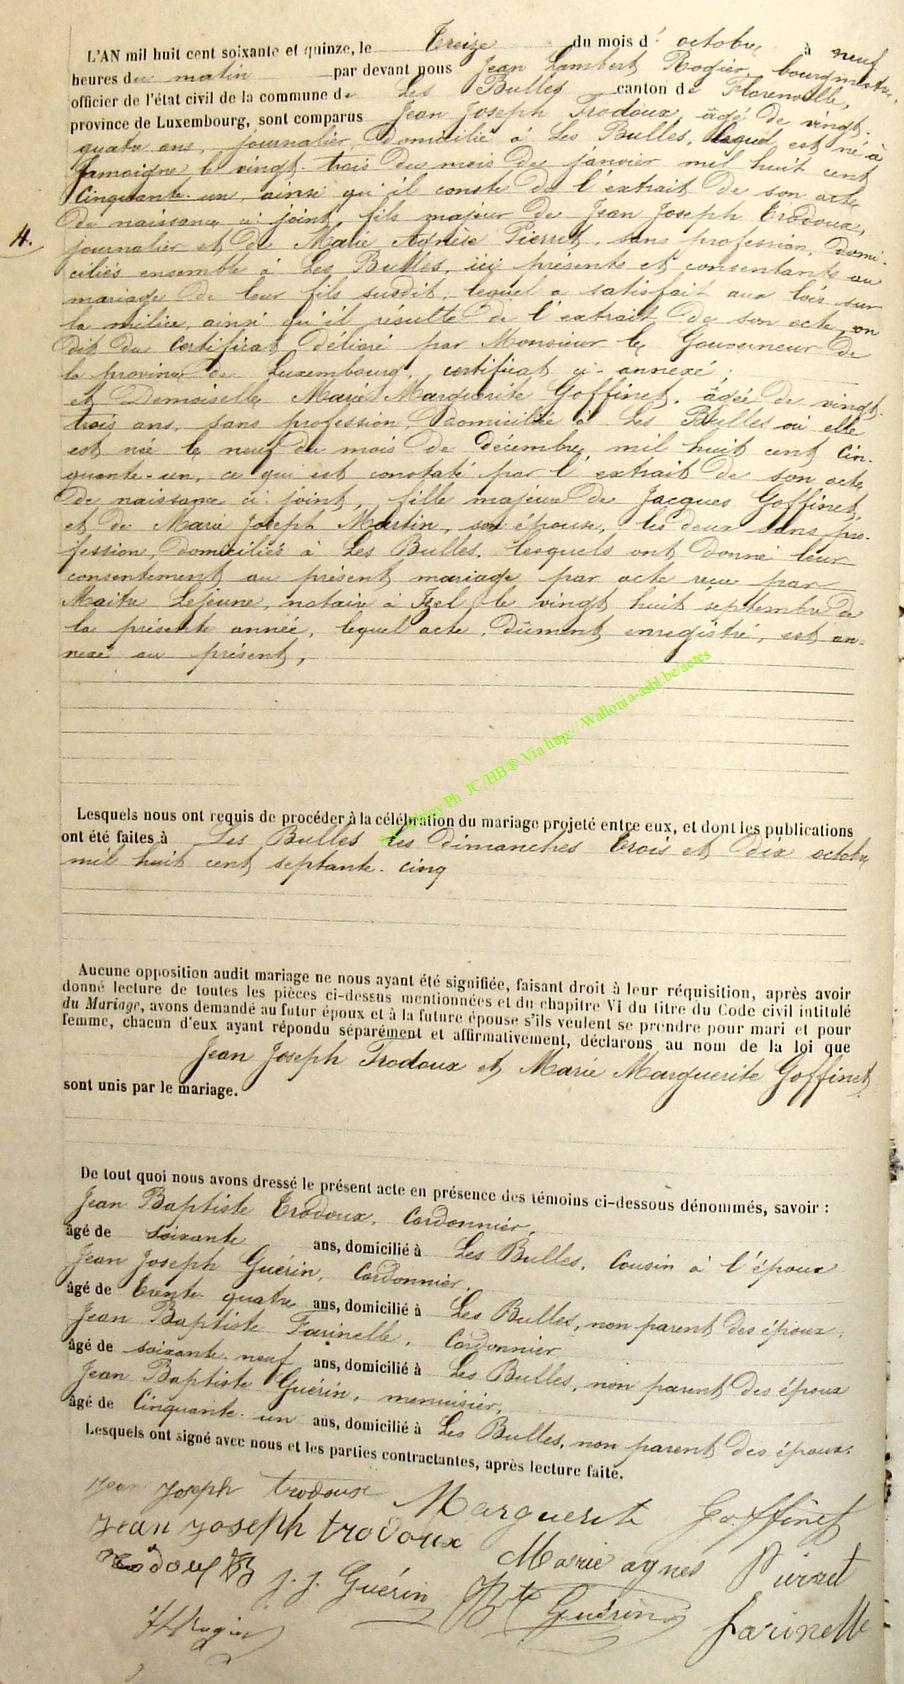 L'AN mil huit cent soixante et quinze, le Treize du mois d' octobre à neuf
heures du matin par devant nous Jean Lambert Rogier, bourgmestre,
officier de l'état civil de la commune de Les Bulles canton de Florenville,
province de Luxembourg, sont comparus Jean Joseph Trodoux, âgé de vingt-
quatre ans, journalier, domicilié à Les Bulles, lequel est né à
Jamoigne le vingt-trois du mois de janvier mil huit cent
Cinquante-un, ainsi qu'il conste de l'extrait de son acte
de naissance ci-joint, fils majeur de Jean Joseph Trodoux,
4. journalier et de Marie Agnèse Pierret, sans profession, domi-
ciliés ensemble à Les Bulles, ici présents et consentants au
mariage de leur fils susdit, lequel a satisfait aux lois sur
la milice, ainsi qu'il résulte de l'extrait de son acte, on
dit du Certificat délivré par Monsieur le Gouverneur de
la province de Luxembourg, certificat ci-annexé;
et Demoiselle Marie Marguerite Goffinet, âgée de vingt-
trois ans, sans profession, domiciliée à Les Bulles où elle
est née le neuf du mois de Décembre, mil huit cent Cin-
quante-un, ce qui est constaté par l'extrait de son acte
de naissance ci-joint, fille majeure de Jacques Goffinet,
et de Marie Joseph Martin, son épouse, les deux sans pro-
fession, domiciliés à Les Bulles, lesquels ont donné leur
consentement au présent mariage par acte reçu par
Maître Lejeune, notaire à Izel, le vingt huit septembre de
la présente année, lequel acte, dûment enregistré, est an-
nexé au présent,
Ph. JC /HB ® Via http://Wallonia-asbl.be/actes
Lesquels nous ont requis de procéder à la célébration du mariage projeté entre eux, et dont les publications
ont été faites à Les Bulles les dimanches Trois et dix octobre
mil huit cent septante-cinq
Aucune opposition audit mariage ne nous ayant été signifiée, faisant droit à leur réquisition, après avoir
donné lecture de toutes les pièces ci-dessus mentionnées et du chapitre VI du titre du Code civil intitulé
du Mariage, avons demandé au futur époux et à la future épouse s'ils veulent se prendre pour mari et pour
femme, chacun d'eux ayant répondu séparément et affirmativement, déclarons au nom de la loi que
Jean Joseph Trodoux et Marie Marguerite Goffinet
sont unis par le mariage.
De tout quoi nous avons dressé le présent acte en présence des témoins ci-dessous dénommés, savoir :
Jean Baptiste Trodoux, Cordonnier,
âgé de soixante ans, domicilié à Les Bulles, Cousin à l'époux
Jean Joseph Guérin, Cordonnier,
âgé de trente-quatre ans, domicilié à Les Bulles, non parent des époux,
Jean Baptiste Farinelle, Cordonnier
âgé de soixante-neuf ans, domicilié à Les Bulles, non parent des époux
Jean Baptiste Guérin, menuisier,
âgé de Cinquante-un ans, domicilié à Les Bulles, non parent des époux;
Lesquels ont signé avec nous et les parties contractantes, après lecture faite.
Jean Joseph trodoux Marguerite Goffinet
Jean Joseph trodoux Marie agnes Pierret
J. J. Guérin Bte Guérin farinelle
JLRogier